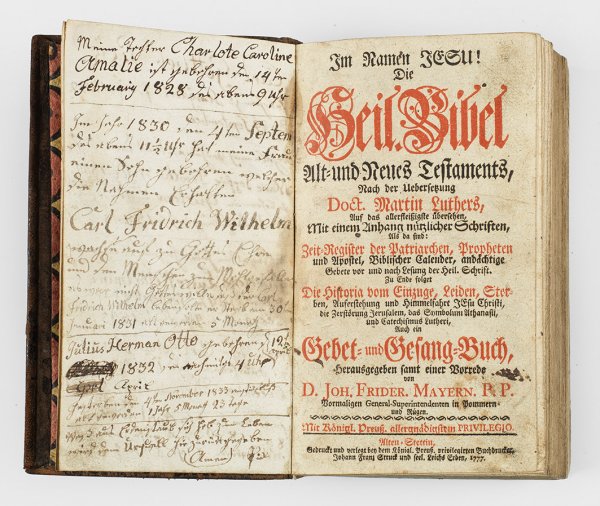 Meine Tochter Charlote Caroline
Amalie ist gebohren den 14ten
Februarij 1828 des abens 9 uhr
Im Jahr 1830 den 4ten Septem
des abens 11½ uhr hat meine Frau
einen Sohn gebohren welcher
die Nahmen Erhalten
Carl Fridrich Wilhelm
wachse auf zu Gottes Ehre
und den Menschen zum
Fridrich Wilhelm
Januari 1831 alt 5 Monath
Julius Herman Otto gebohren d 12
1832 des 4 uhr
April
gestorben den 4ten November 1833
alt geworden 1 Jahr 5 Monath 23 tage
(Amen)
Im Namen JESU!
Die
Heil. Bibel
Alt- und Neues Testaments,
Nach der Uebersetzung
Doct. Martin Luthers,
Auf das allerfleißigste übersehen,
Mit einem Anhang nützlicher Schriften,
Als da sind:
Zeit-Register der Patriarchen, Propheten
und Apostel, Biblischer Calender, andächtige
Gebete vor und nach Lesung der Heil. Schrift.
Zu Ende folget
Die Historia vom Einzuge, Leiden, Ster-
ben, Auferstehung und Himmelfahrt JEsu Christi,
die Zerstörung Jerusalem, das Symbolum Athanasii,
und Catechismus Lutheri,
Auch ein
Gebet- und Gesang-Buch,
Herausgegeben samt einer Vorrede
von
D. JOH. FRIDER. MAYERN. P. P.
Vormaligen General-Superintendenten in Pommern
und Rügen.
Mit Königl. Preuß. allergnädigstem PRIVILEGIO.
Alten-Stettin,
Gedruckt und verlegt bey dem Königl. Preuß. privilegirten Buchdrucker,
Johann Franz Struck und seel. Leichs Erben, 1777.